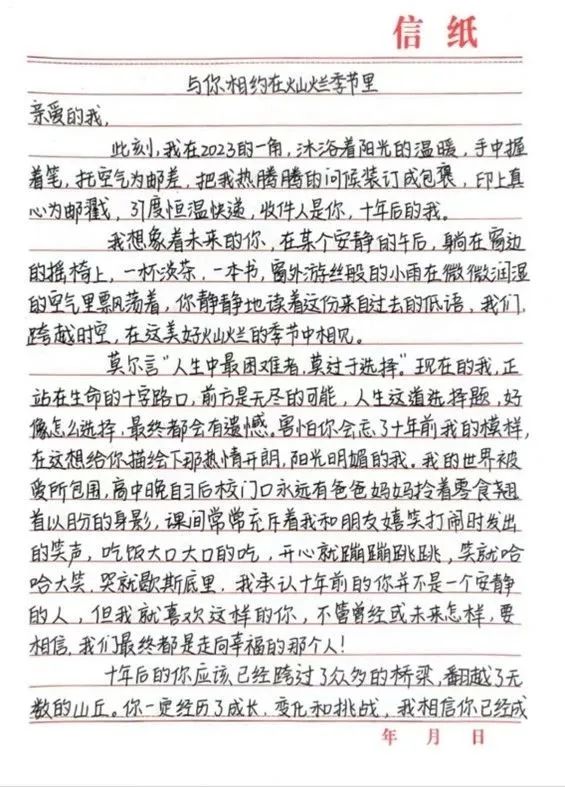 信纸
与你相约在灿烂季节里
亲爱的我,
此刻,我在2023的一角,沐浴着阳光的温暖,手中握
着笔,托空气为邮差,把我热腾腾的问候装订成包裹,印上真
心为邮戳,37度恒温快递,收件人是你,十年后的我。
我想象着未来的你,在某个安静的午后,躺在窗边
的摇椅上,一杯淡茶,一本书,窗外游丝般的小雨在微微润湿
的空气里飘荡着,你静静地读着这份来自过去的低语,我们,
跨越时空,在这美好灿烂的季节中相见。
莫尔言“人生中最困难者,莫过于选择。”现在的我,正
站在生命的十字路口,前方是无尽的可能,人生这道选择题,好
像怎么选择,最终都会有遗憾。害怕你会忘了十年前我的模样,
在这想给你描绘下那热情开朗,阳光明媚的我。我的世界被
爱所包围,高中晚自习后校门口永远有爸爸妈妈拎着零食翘
首以盼的身影,课间常常充斥着我和朋友嬉笑打闹时发出
的笑声,吃饭大口大口的吃,开心就蹦蹦跳跳,笑就哈
哈大笑,哭就歇斯底里,我承认十年前的你并不是一个安静
的人,但我就喜欢这样的你,不管曾经或未来怎样,要
相信,我们最终都是走向幸福的那个人!
十年后的你应该已经跨过了众多的桥梁,翻越了无
数的山丘。你一定经历了成长、变化和挑战,我相信你已经成
年 月 日